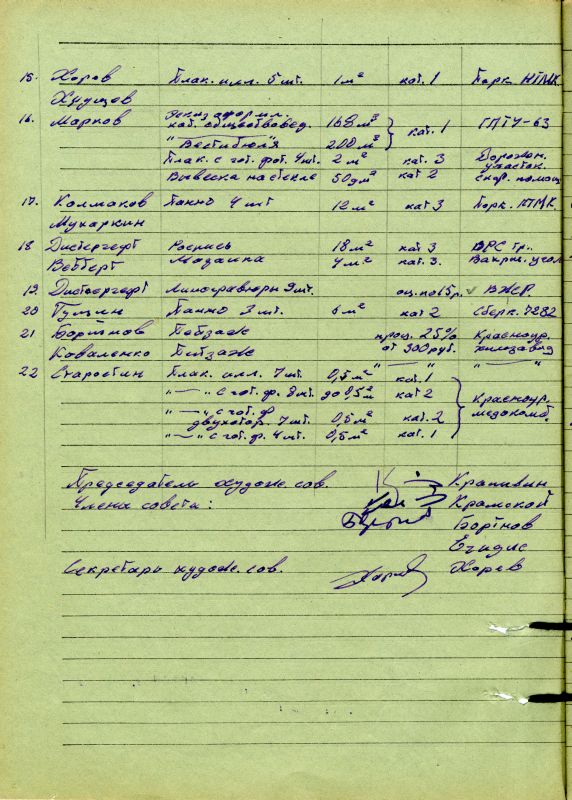 15. Хорев Плак. илл. 5 шт. 1 м² кат. 1 Горк. НТМК
Хрущев
16. Марков Эскиз оформл.
каб. обществовед. 168 м² } кат. 1 ГПТУ-63
" — " Вестибюля 208 м²
Плак. с гот. фот. 4 шт. 2 м² кат. 3 Дорожн. участок
Вывеска на стекле 50 дм² кат 2 скор. помощ
17. Колмаков Панно 4 шт 12 м² кат 3 Горк. НТМК.
Мухаркин
18 Дистергефт Роспись 18 м² кат 3
Вебберг Мозаика 4 м² кат. 3.
19. Дистергефт Линогравюры 9 шт. оц. по 15 р. ВЖР.
20 Гущин Панно 3 шт. 6 м² кат 2 Сберк. 7232
21 Бортнов Пейзаж проц. 25% Красноур.
Коваленко Пейзаж от 300 руб. химзавод
22 Старостин Плак. илл. 7 шт. 0,5 м² кат. 1
" — " с гот. ф. 8 шт. до 0,5 м² кат 2 Красноур.
" — " с гот. ф медкомб.
двухстор. 7 шт. 0,5 м² кат. 2
" — " с гот. ф. 4 шт. 0,5 м² кат. 1
Председатель художе. сов. Крапивин
Члены совета: Крамской
Бортнов
Егидис
Секретарь художе. сов. Хорев